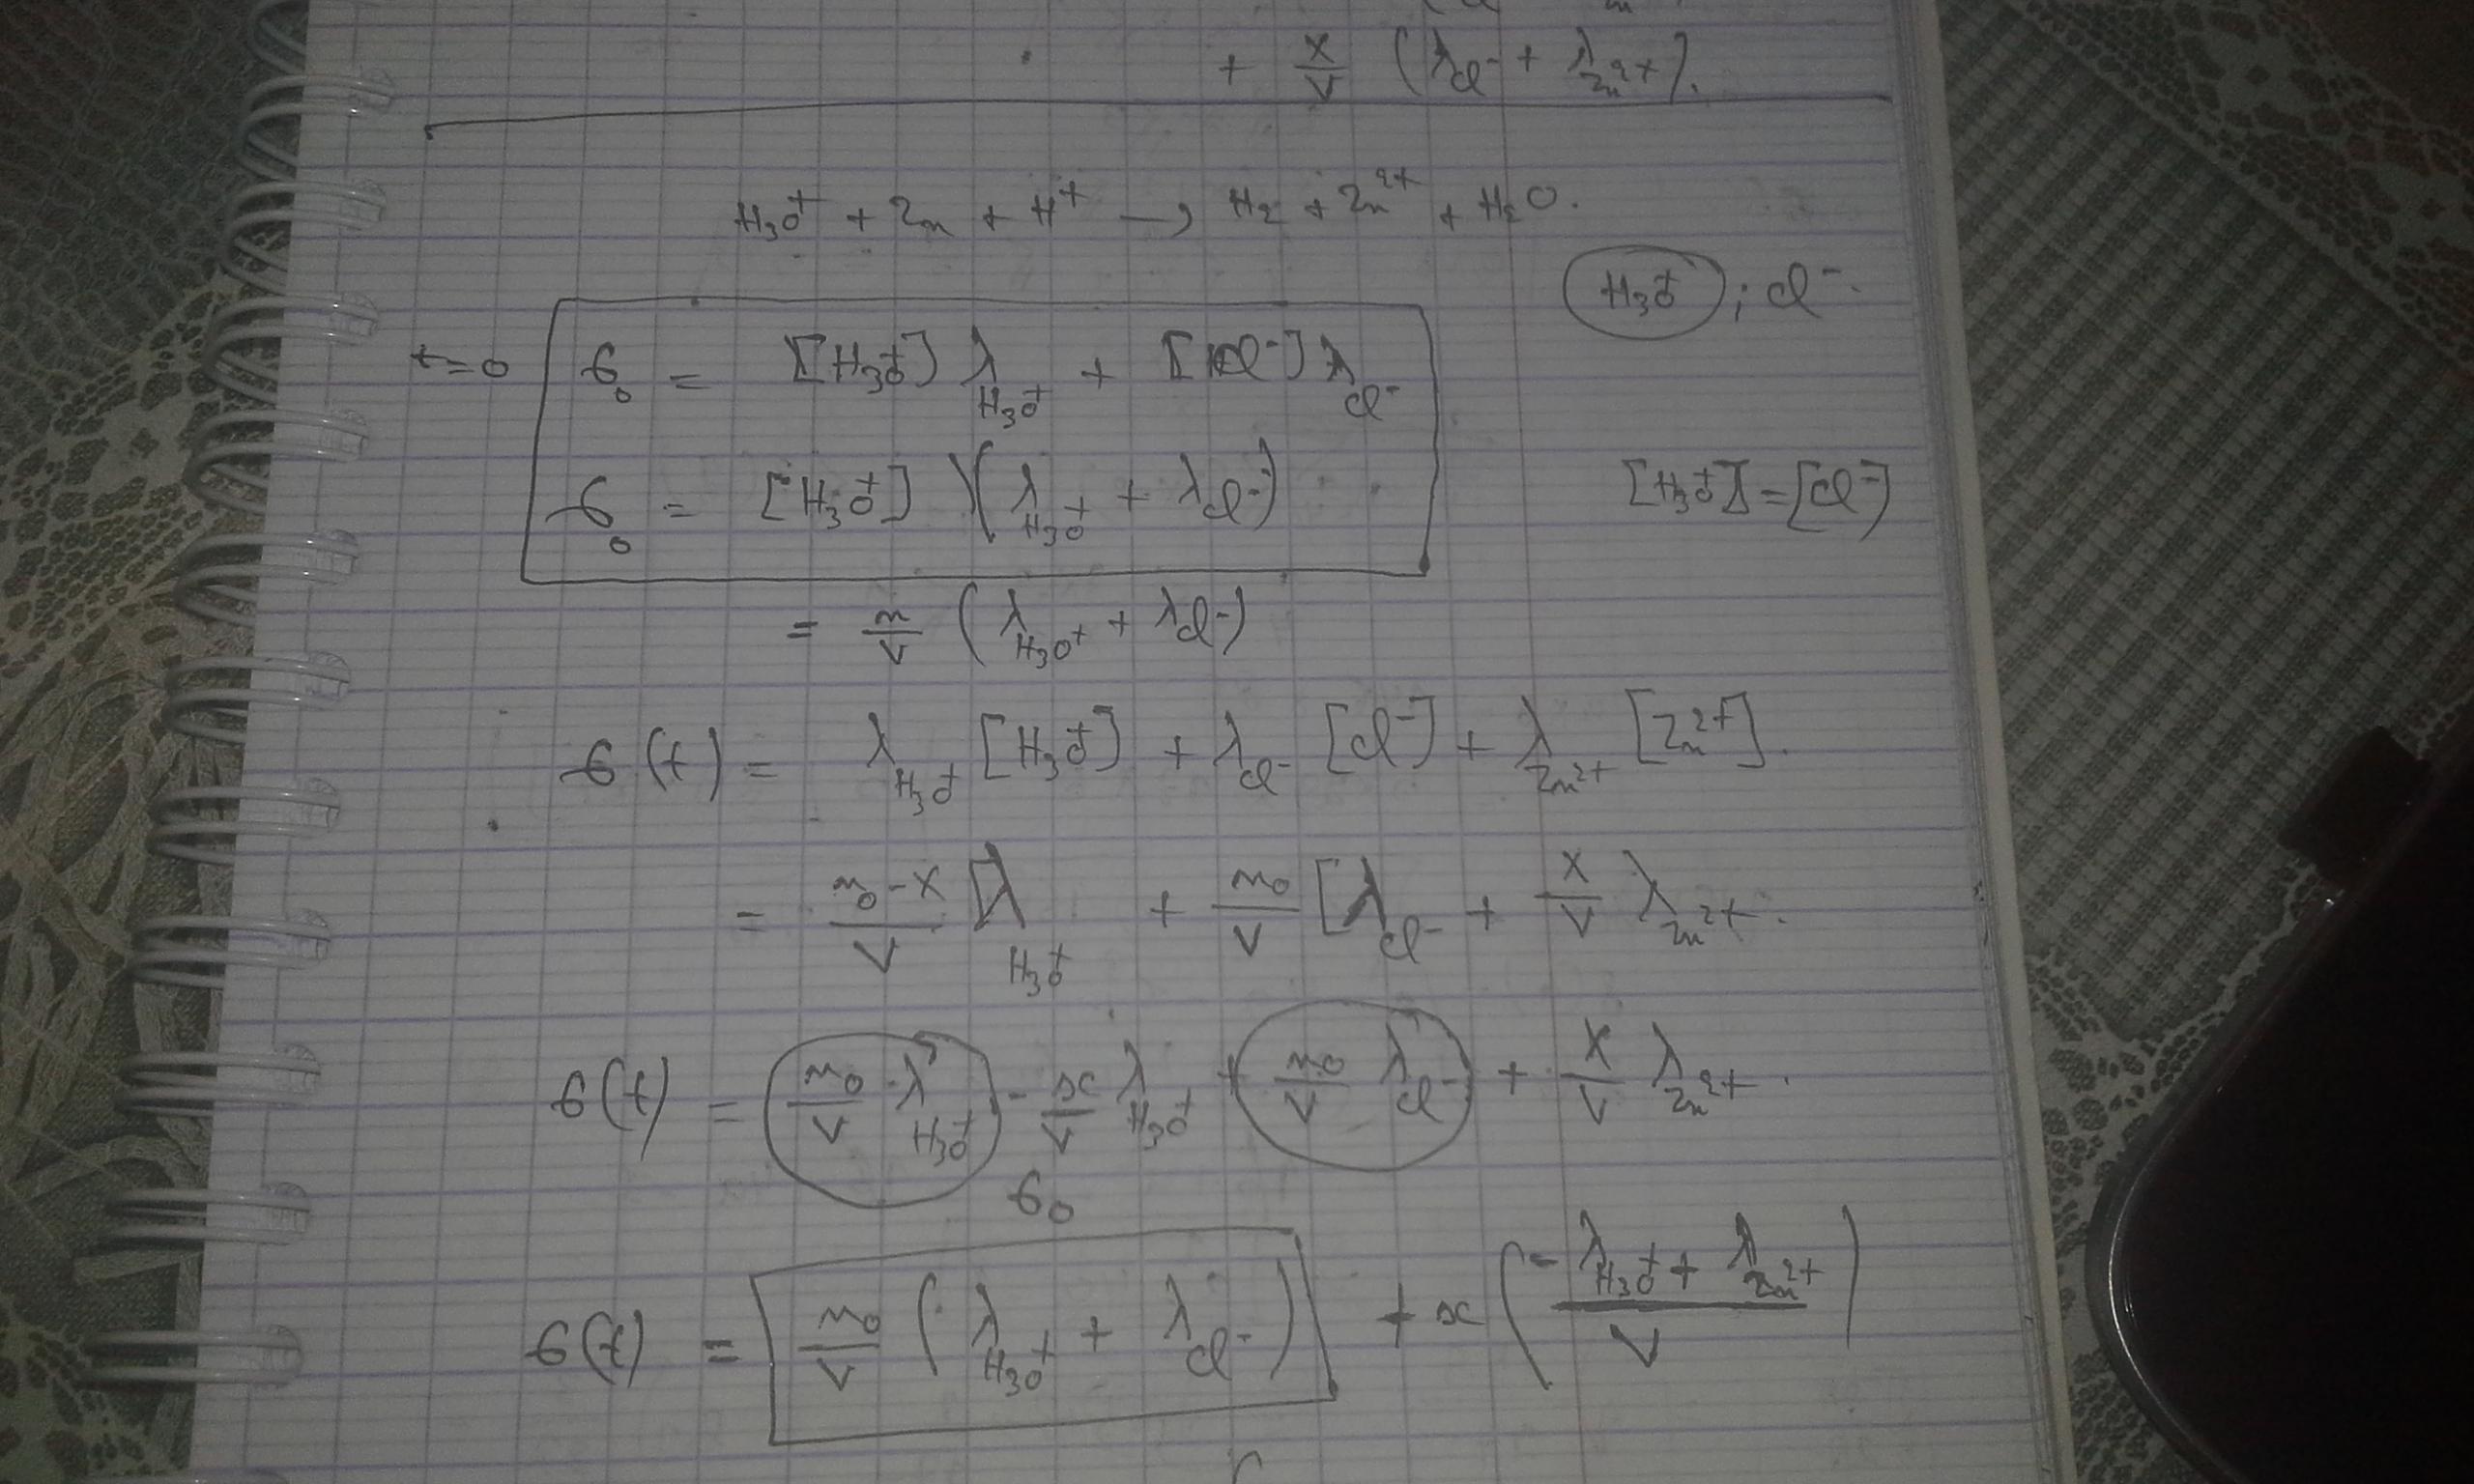 + x/v (λ_Cl⁻ + λ_Zn²⁺).
H₃O⁺ + Zn + H⁺ → H₂ + Zn²⁺ + H₂O.
H₃O⁺ ; Cl⁻.
t=0 σ₀ = [H₃O⁺] λ_H₃O⁺ + [Cl⁻] λ_Cl⁻
σ₀ = [H₃O⁺] (λ_H₃O⁺ + λ_Cl⁻) [H₃O⁺] = [Cl⁻]
= n/v (λ_H₃O⁺ + λ_Cl⁻)
σ(t) = λ_H₃O⁺ [H₃O⁺] + λ_Cl⁻ [Cl⁻] + λ_Zn²⁺ [Zn²⁺].
= (n₀-x)/v [λ_H₃O⁺ + n₀/v [λ_Cl⁻ + x/v λ_Zn²⁺.
σ(t) = n₀/v λ_H₃O⁺ - x/v λ_H₃O⁺ + n₀/v λ_Cl⁻ + x/v λ_Zn²⁺.
σ₀
σ(t) = n₀/v (λ_H₃O⁺ + λ_Cl⁻) + x ((-λ_H₃O⁺ + λ_Zn²⁺)/v)